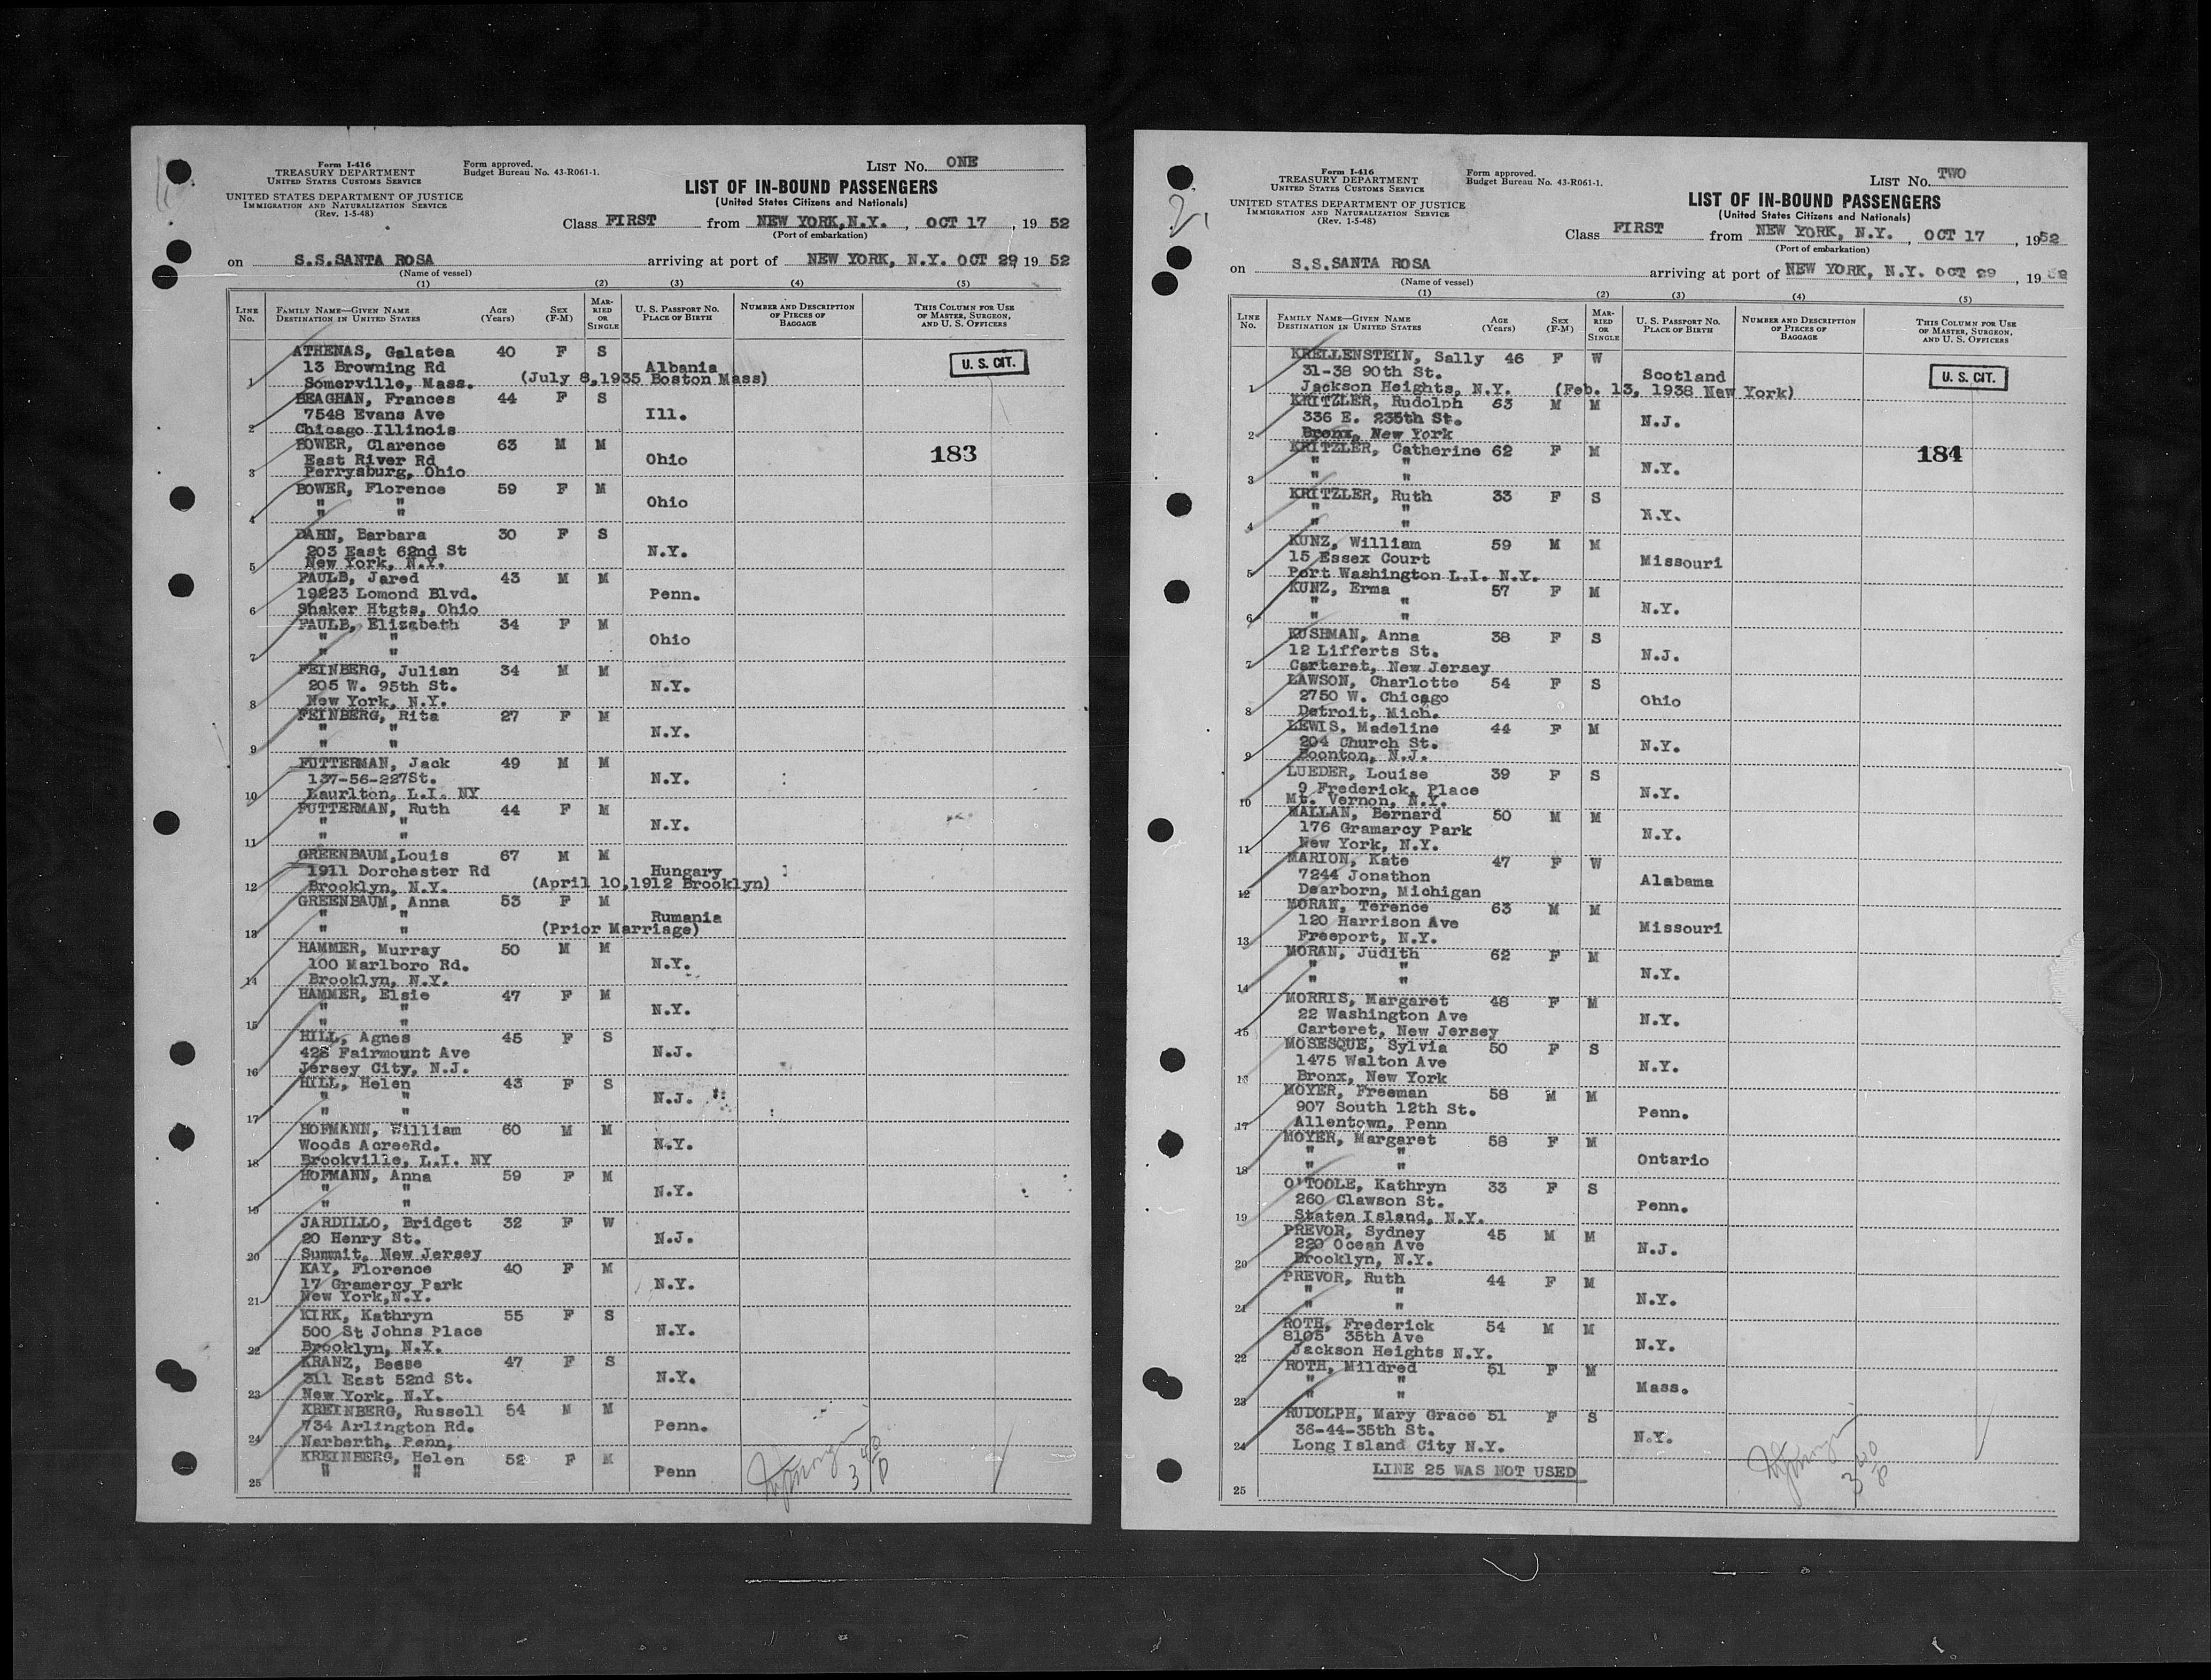 Form I-416
TREASURY DEPARTMENT
UNITED STATES CUSTOMS SERVICE
UNITED STATES DEPARTMENT OF JUSTICE
IMMIGRATION AND NATURALIZATION SERVICE
(Rev. 1-5-48)
Form approved.
Budget Bureau No. 43-R061-1.
LIST No. ONE
LIST OF IN-BOUND PASSENGERS
(United States Citizens and Nationals)
Class FIRST from NEW YORK,N.Y. , OCT 17 , 19 52
(Port of embarkation)
on S.S.SANTA ROSA arriving at port of NEW YORK, N.Y. OCT 29, 19 52
(Name of vessel)
(1) (2) (3) (4) (5)
LINE No. FAMILY NAME—GIVEN NAME DESTINATION IN UNITED STATES AGE (Years) SEX (F-M) MARRIED OR SINGLE U. S. PASSPORT No. PLACE OF BIRTH NUMBER AND DESCRIPTION OF PIECES OF BAGGAGE THIS COLUMN FOR USE OF MASTER, SURGEON, AND U. S. OFFICERS
ATHENAS, Galatea 40 F S
13 Browning Rd Albania U. S. CIT.
1 Somerville, Mass. (July 8,1935 Boston Mass)
BEAGHAN, Frances 44 F S
7548 Evans Ave Ill.
2 Chicago Illinois
BOWER, Clarence 63 M M
East River Rd Ohio 183
3 Perrysburg, Ohio
BOWER, Florence 59 F M
" " Ohio
4 " "
DAHN, Barbara 30 F S
203 East 62nd St N.Y.
5 New York, N.Y.
FAULB, Jared 43 M M
19223 Lomond Blvd. Penn.
6 Shaker Htgts, Ohio
FAULB, Elizabeth 34 F M
" " Ohio
7 " "
FEINBERG, Julian 34 M M
205 W. 95th St. N.Y.
8 New York, N.Y.
FEINBERG, Rita 27 F M
" " N.Y.
9 " "
FUTTERMAN, Jack 49 M M
137-56-227St. N.Y.
10 Laurlton, L.I. NY
FUTTERMAN, Ruth 44 F M
" " N.Y.
11 " "
GREENBAUM,Louis 67 M M
1911 Dorchester Rd Hungary
12 Brooklyn, N.Y. (April 10,1912 Brooklyn)
GREENBAUM, Anna 53 F M
" " Rumania
13 " " (Prior Marriage)
HAMMER, Murray 50 M M
100 Marlboro Rd. N.Y.
14 Brooklyn, N.Y.
HAMMER, Elsie 47 F M
" " N.Y.
15 " "
HILL, Agnes 45 F S
428 Fairmount Ave N.J.
16 Jersey City, N.J.
HILL, Helen 43 F S
" " N.J.
17 " "
HOFMANN, William 60 M M
Woods AcreeRd. N.Y.
18 Brookville, L.I. NY
HOFMANN, Anna 59 F M
" " N.Y.
19 " "
JARDILLO, Bridget 32 F W
20 Henry St. N.J.
20 Summit, New Jersey
KAY, Florence 40 F M
17 Gramercy Park N.Y.
21 New York,N.Y.
KIRK, Kathryn 55 F S
500 St Johns Place N.Y.
22 Brooklyn, N.Y.
KRANZ, Besse 47 F S
311 East 52nd St. N.Y.
23 New York, N.Y.
KREINBERG, Russell 54 M M
734 Arlington Rd. Penn.
24 Narberth, Penn,
KREINBERG, Helen 52 F M
" " Penn
25
Form I-416
TREASURY DEPARTMENT
UNITED STATES CUSTOMS SERVICE
UNITED STATES DEPARTMENT OF JUSTICE
IMMIGRATION AND NATURALIZATION SERVICE
(Rev. 1-5-48)
2,
Form approved.
Budget Bureau No. 43-R061-1.
LIST No. TWO
LIST OF IN-BOUND PASSENGERS
(United States Citizens and Nationals)
Class FIRST from NEW YORK, N.Y. , OCT 17 , 1952
(Port of embarkation)
on S.S.SANTA ROSA arriving at port of NEW YORK, N.Y. OCT 29 , 19 52
(Name of vessel)
(1) (2) (3) (4) (5)
LINE No. FAMILY NAME—GIVEN NAME DESTINATION IN UNITED STATES AGE (Years) SEX (F-M) MARRIED OR SINGLE U. S. PASSPORT No. PLACE OF BIRTH NUMBER AND DESCRIPTION OF PIECES OF BAGGAGE THIS COLUMN FOR USE OF MASTER, SURGEON, AND U. S. OFFICERS
KRELLENSTEIN, Sally 46 F W
31-38 90th St. Scotland U. S. CIT.
1 Jackson Heights, N.Y. (Feb. 13, 1938 New York)
KRITZLER, Rudolph 63 M M
336 E. 235th St. N.J.
2 Bronx, New York
KRITZLER, Catherine 62 F M 184
" " N.Y.
3 "
KRITZLER, Ruth 33 F S
" " N.Y.
4 " "
KUNZ, William 59 M M
15 Essex Court Missouri
5 Port Washington L.I. N.Y.
KUNZ, Erma 57 F M
" " N.Y.
6 " "
KUSHMAN, Anna 38 F S
12 Lifferts St. N.J.
7 Carteret, New Jersey
LAWSON, Charlotte 54 F S
2750 W. Chicago Ohio
8 Detroit, Mich.
LEWIS, Madeline 44 F M
204 Church St. N.Y.
9 Boonton, N.J.
LUEDER, Louise 39 F S
9 Frederick, Place N.Y.
10 Mt. Vernon, N.Y.
MALLAN, Bernard 50 M M
176 Gramarcy Park N.Y.
11 New York, N.Y.
MARION, Kate 47 F W
7244 Jonathon Alabama
12 Dearborn, Michigan
MORAN, Terence 63 M M
120 Harrison Ave Missouri
13 Freeport, N.Y.
MORAN, Judith 62 F M
" " N.Y.
14 " "
MORRIS, Margaret 48 F M
22 Washington Ave N.Y.
15 Carteret, New Jersey
MOSESQUE, Sylvia 50 F S
1475 Walton Ave N.Y.
16 Bronx, New York
MOYER, Freeman 58 M M
907 South 12th St. Penn.
17 Allentown, Penn
MOYER, Margaret 58 F M
" " Ontario
18 " "
O'TOOLE, Kathryn 33 F S
260 Clawson St. Penn.
19 Staten Island, N.Y.
PREVOR, Sydney 45 M M
220 Ocean Ave N.J.
20 Brooklyn, N.Y.
PREVOR, Ruth 44 F M
" " N.Y.
21 " "
ROTH, Frederick 54 M M
8105 35th Ave N.Y.
22 Jackson Heights N.Y.
ROTH, Mildred 51 F M
" " Mass.
23 " "
RUDOLPH, Mary Grace 51 F S
36-44-35th St. N.Y.
24 Long Island City N.Y.
LINE 25 WAS NOT USED
25